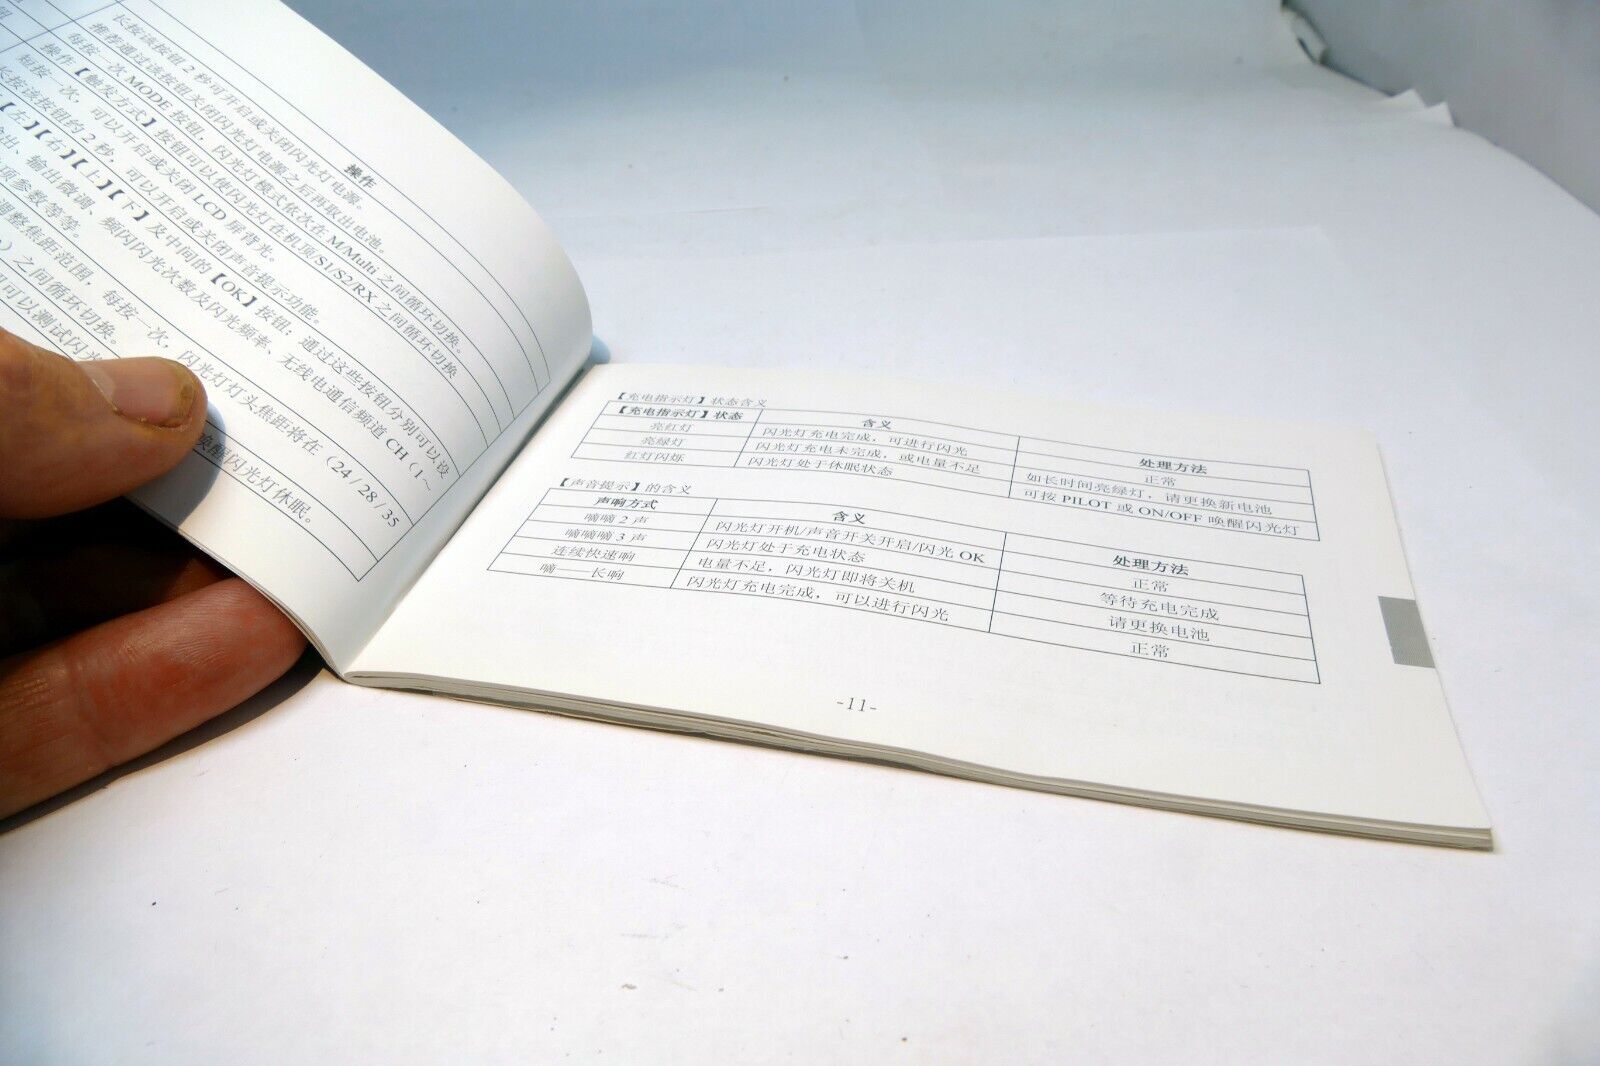 操作
长按该按钮 2 秒可开启或关闭闪光灯电源。
推荐通过该按钮关闭闪光灯电源之后再取出电池。
每按一次 MODE 按钮，闪光灯模式依次在 M/Multi 之间循环切换。
操作【触发方式】按钮可以使闪光灯在机顶/S1/S2/RX 之间循环切换
短按一次，可以开启或关闭 LCD 屏背光。
长按该按钮约 2 秒，可以开启或关闭声音提示功能。
【左】【右】【上】【下】及中间的【OK】按钮：通过这些按钮分别可以设
出、输出微调、频闪闪光次数及闪光频率、无线电通信频道 CH（1～
项参数等等。
调整焦距范围，每按一次，闪光灯灯头焦距将在（24 / 28 / 35
）之间循环切换。
可以测试闪光
唤醒闪光灯休眠。
【充电指示灯】状态含义
【充电指示灯】状态 含义 处理方法
亮红灯 闪光灯充电完成，可进行闪光 正常
亮绿灯 闪光灯充电未完成，或电量不足 如长时间亮绿灯，请更换新电池
红灯闪烁 闪光灯处于休眠状态 可按 PILOT 或 ON/OFF 唤醒闪光灯
【声音提示】的含义
声响方式 含义 处理方法
嘀嘀 2 声 闪光灯开机/声音开关开启/闪光 OK 正常
嘀嘀嘀 3 声 闪光灯处于充电状态 等待充电完成
连续快速响 电量不足，闪光灯即将关机 请更换电池
嘀——长响 闪光灯充电完成，可以进行闪光 正常
-11-